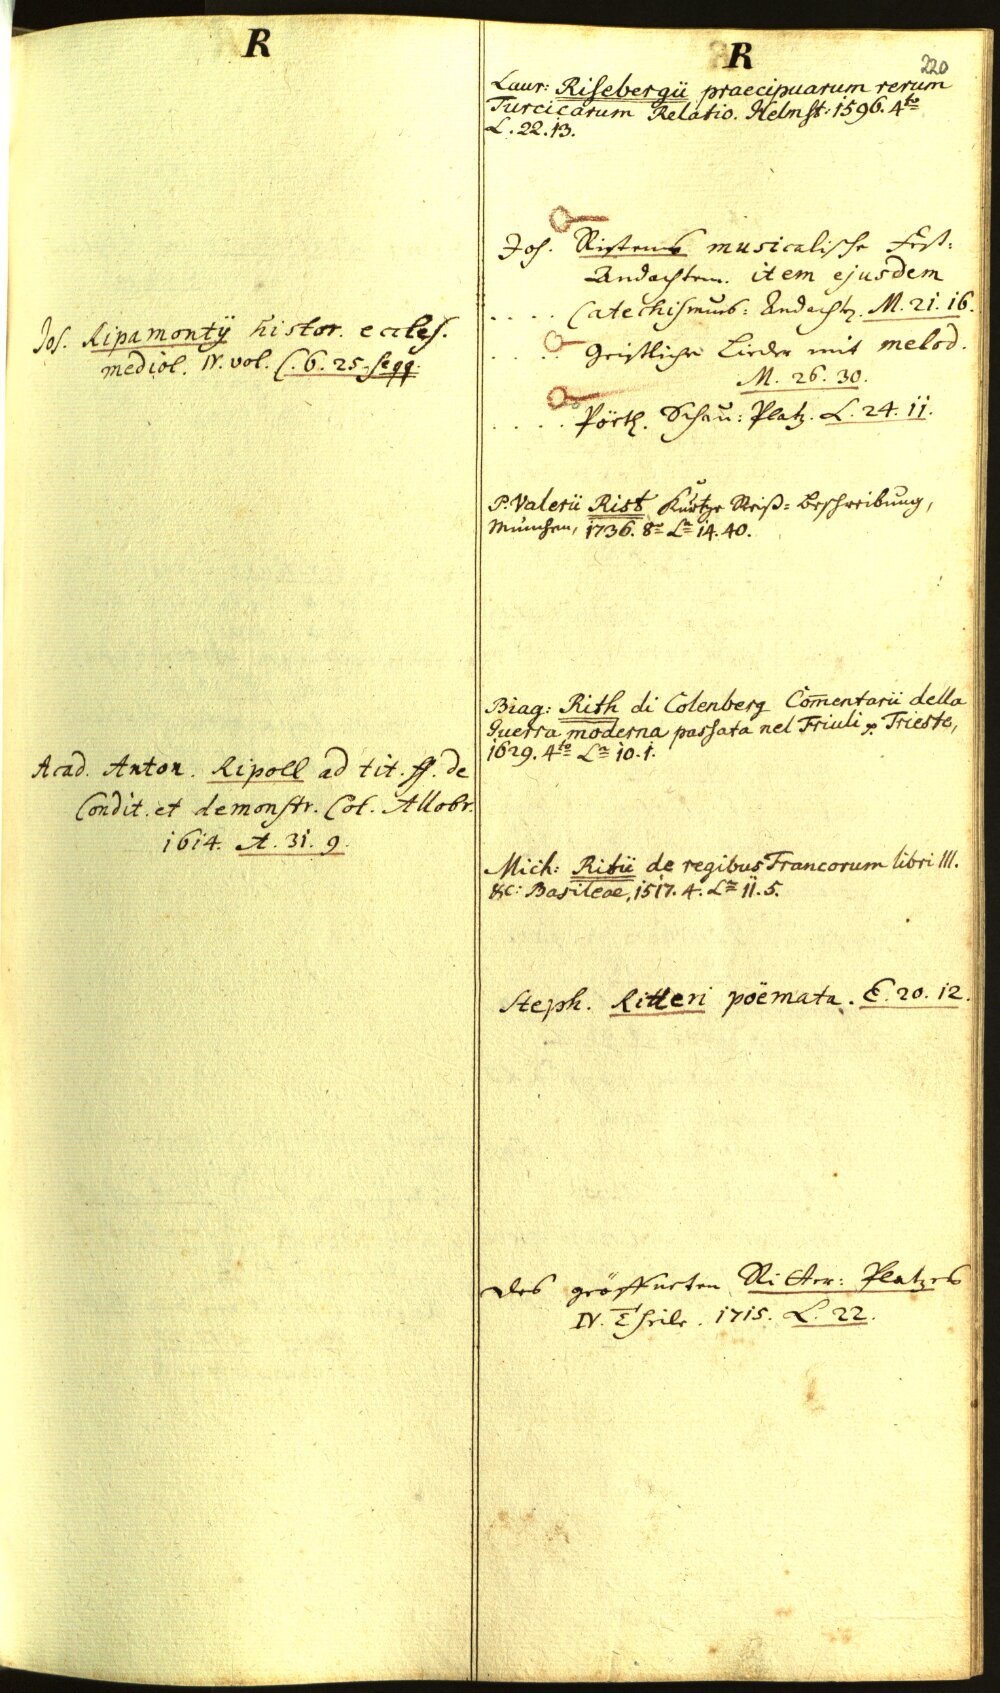 R
Jos. Ripamontij histor. eccles.
mediol. IV. vol. C. 6. 25. seqq.
Acad. Anton. Ripoll ad tit. ff. de
Condit. et demonstr. Col. Allobr.
1614. A. 31. 9.
R
220
Laur: Risebergii praecipuarum rerum
Turcicarum Relatio. Helmst: 1596. 4to
L. 22. 13.
Joh. Ristens musicalische Fest-
Andachten. item ejusdem
.... Catechismus: Andacht. M. 21. 16.
.... Geistliche Lieder mit melod.
M. 26. 30.
.... Poët. Schau: Platz. L. 24. 11.
P. Valerii Rist Kurtze Reiß-beschreibung,
München, 1736. 8o La 14. 40.
Biag: Rith di Colenberg Com̄entarii della
Guerra moderna passata nel Friuli Trieste,
1629. 4to La 10. 1.
Mich: Ritii de regibus Francorum libri III.
&c: Basileae, 1517. 4. La 11. 5.
Steph. Ritteri poëmata. E. 20. 12.
Des geöffneten Ritter: Platzes
IV. Theile. 1715. L. 22.